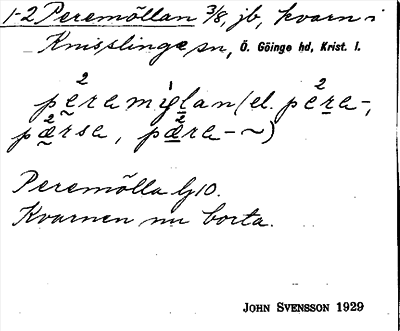 1-2 Peremöllan 3/8, jb, kvarn i
Knisslinge sn, Ö. Göinge hd, Krist. l.
peramylan (el. pera-,
pærsa, pæra- ~)
Peremölla lg 10.
Kvarnen nu borta.
JOHN SVENSSON 1929